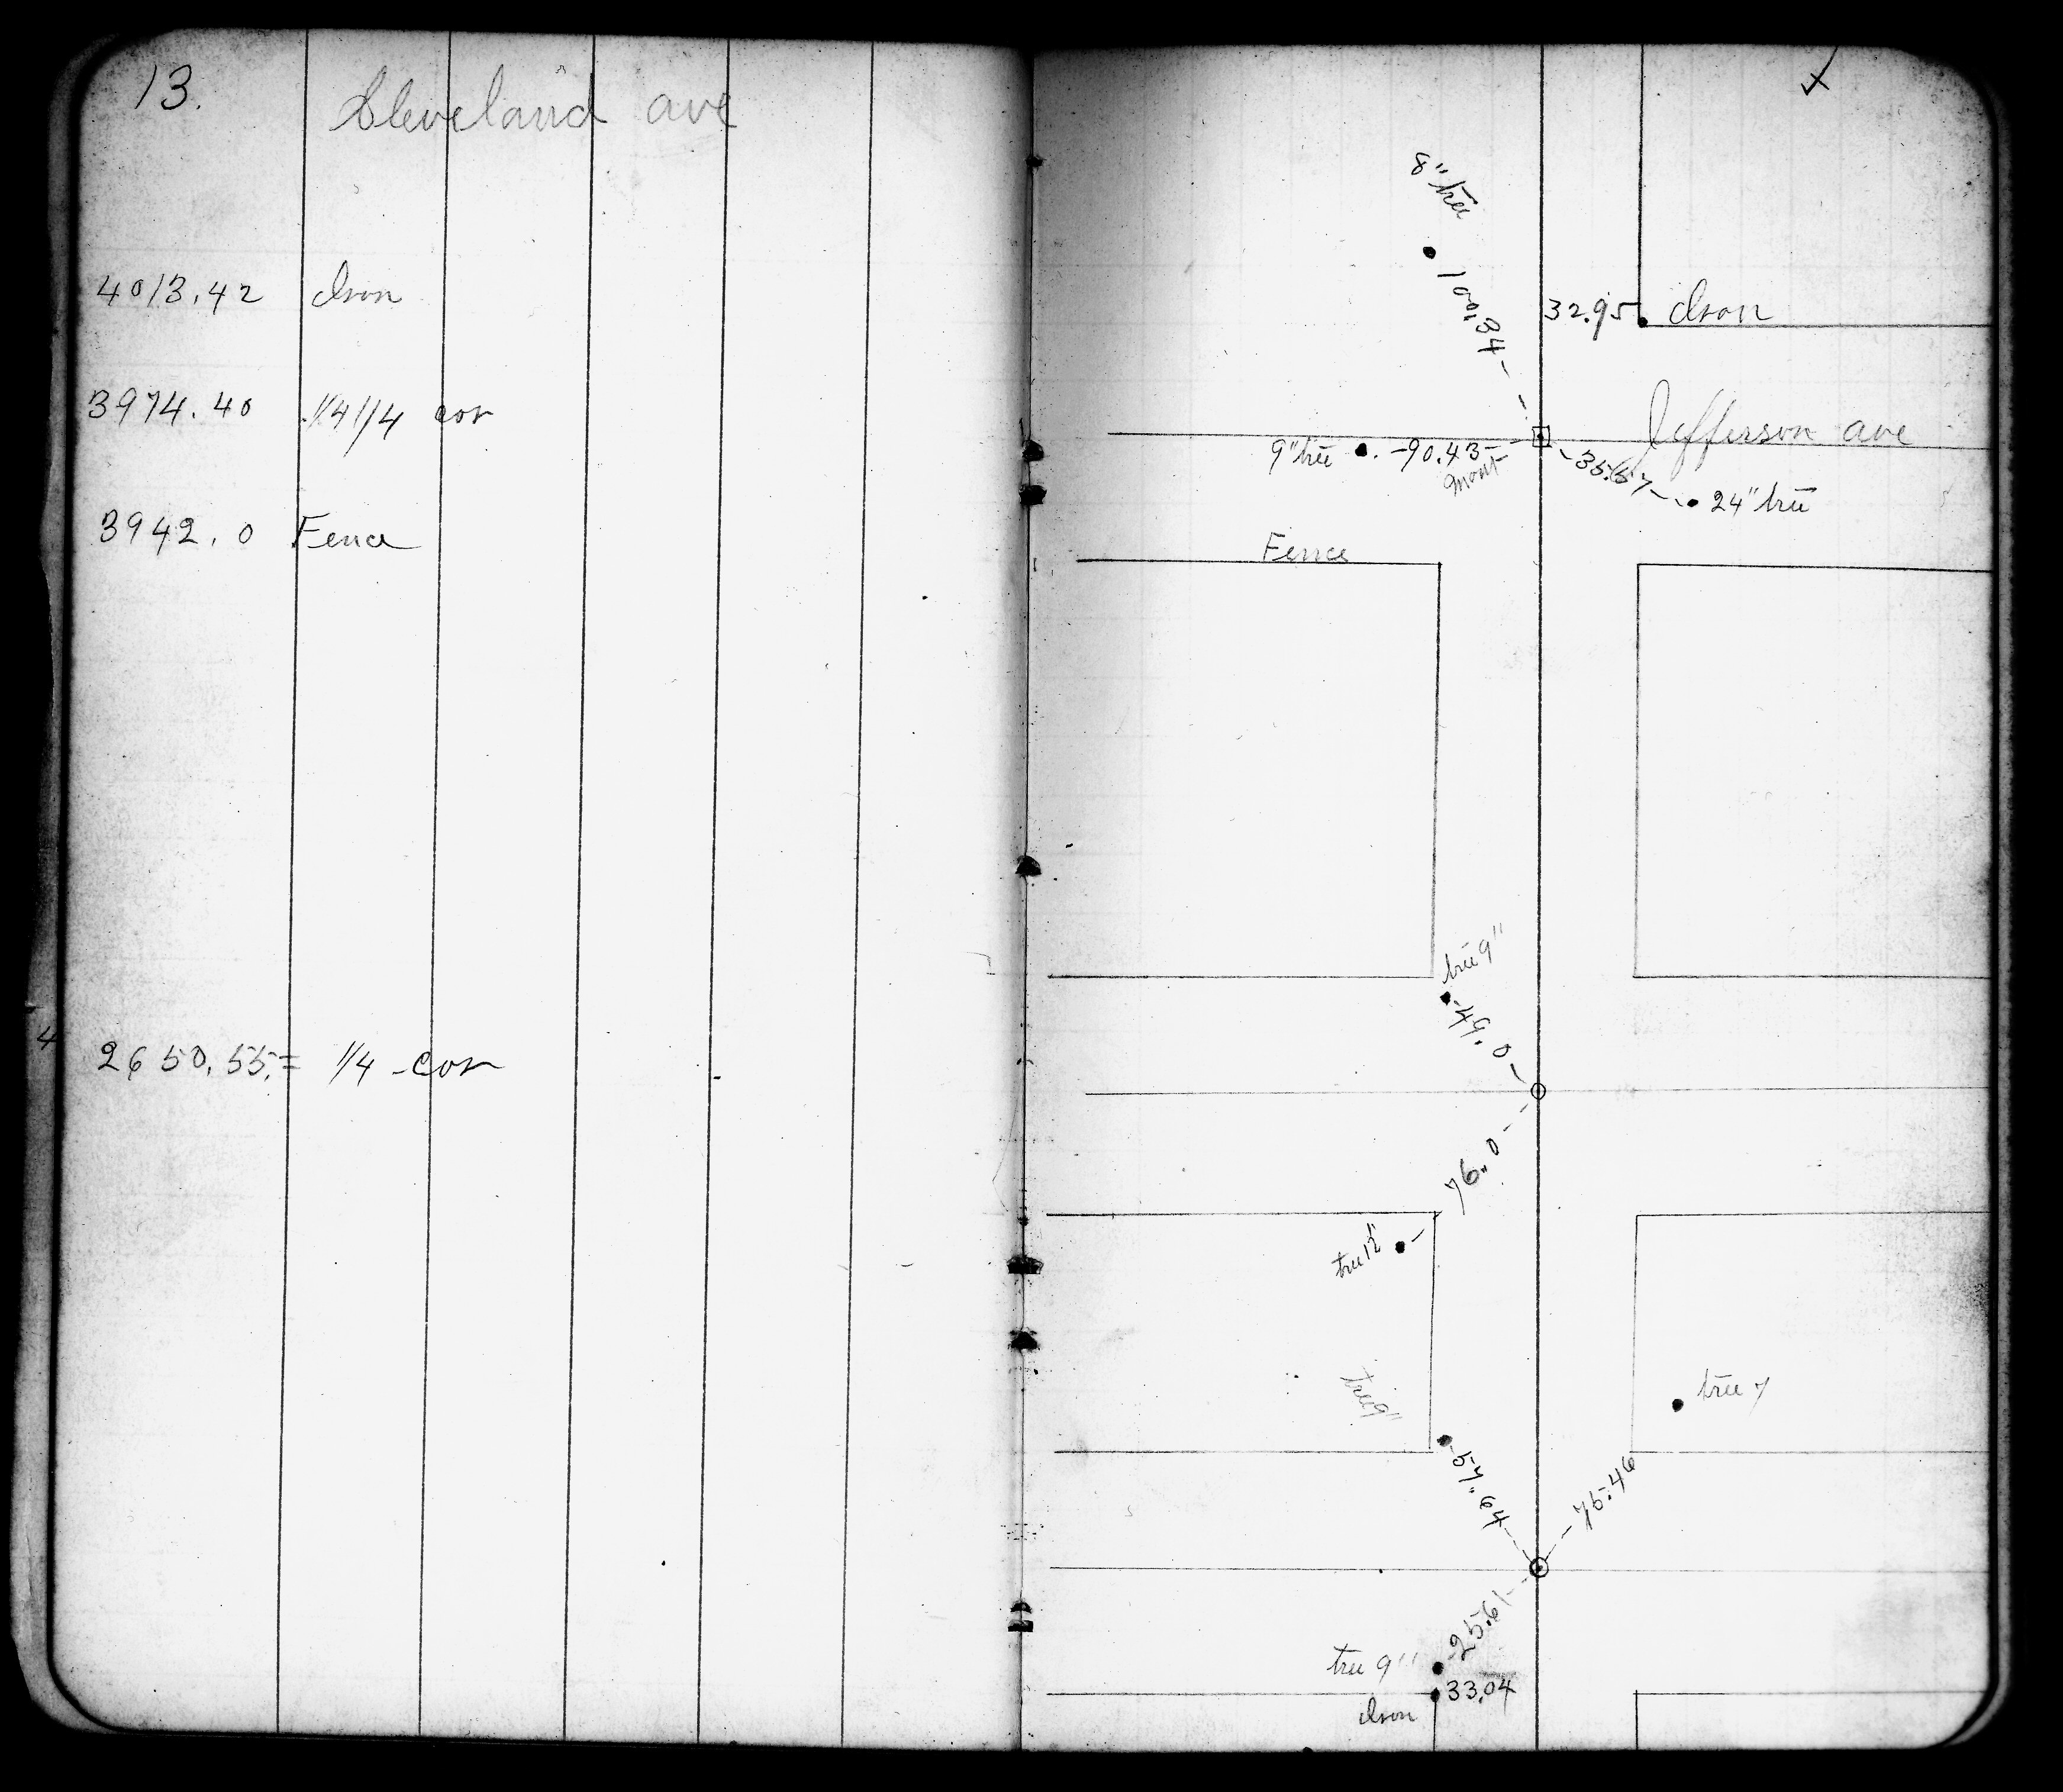 13.
Cleveland ave
4013.42 Iron
3974.40 1/4 1/4 cor
3942.0 Fence
4
2650.55 = 1/4 - cor
8" tree
100.34
32.95 Iron
Jefferson ave
9" tree -90.43-
mont
24" tree
Fence
tree 9"
49.0
76.0
tree 12"
tree 9"
tree 7
57.64
75.46
25.61
tree 9"
33.04
Iron